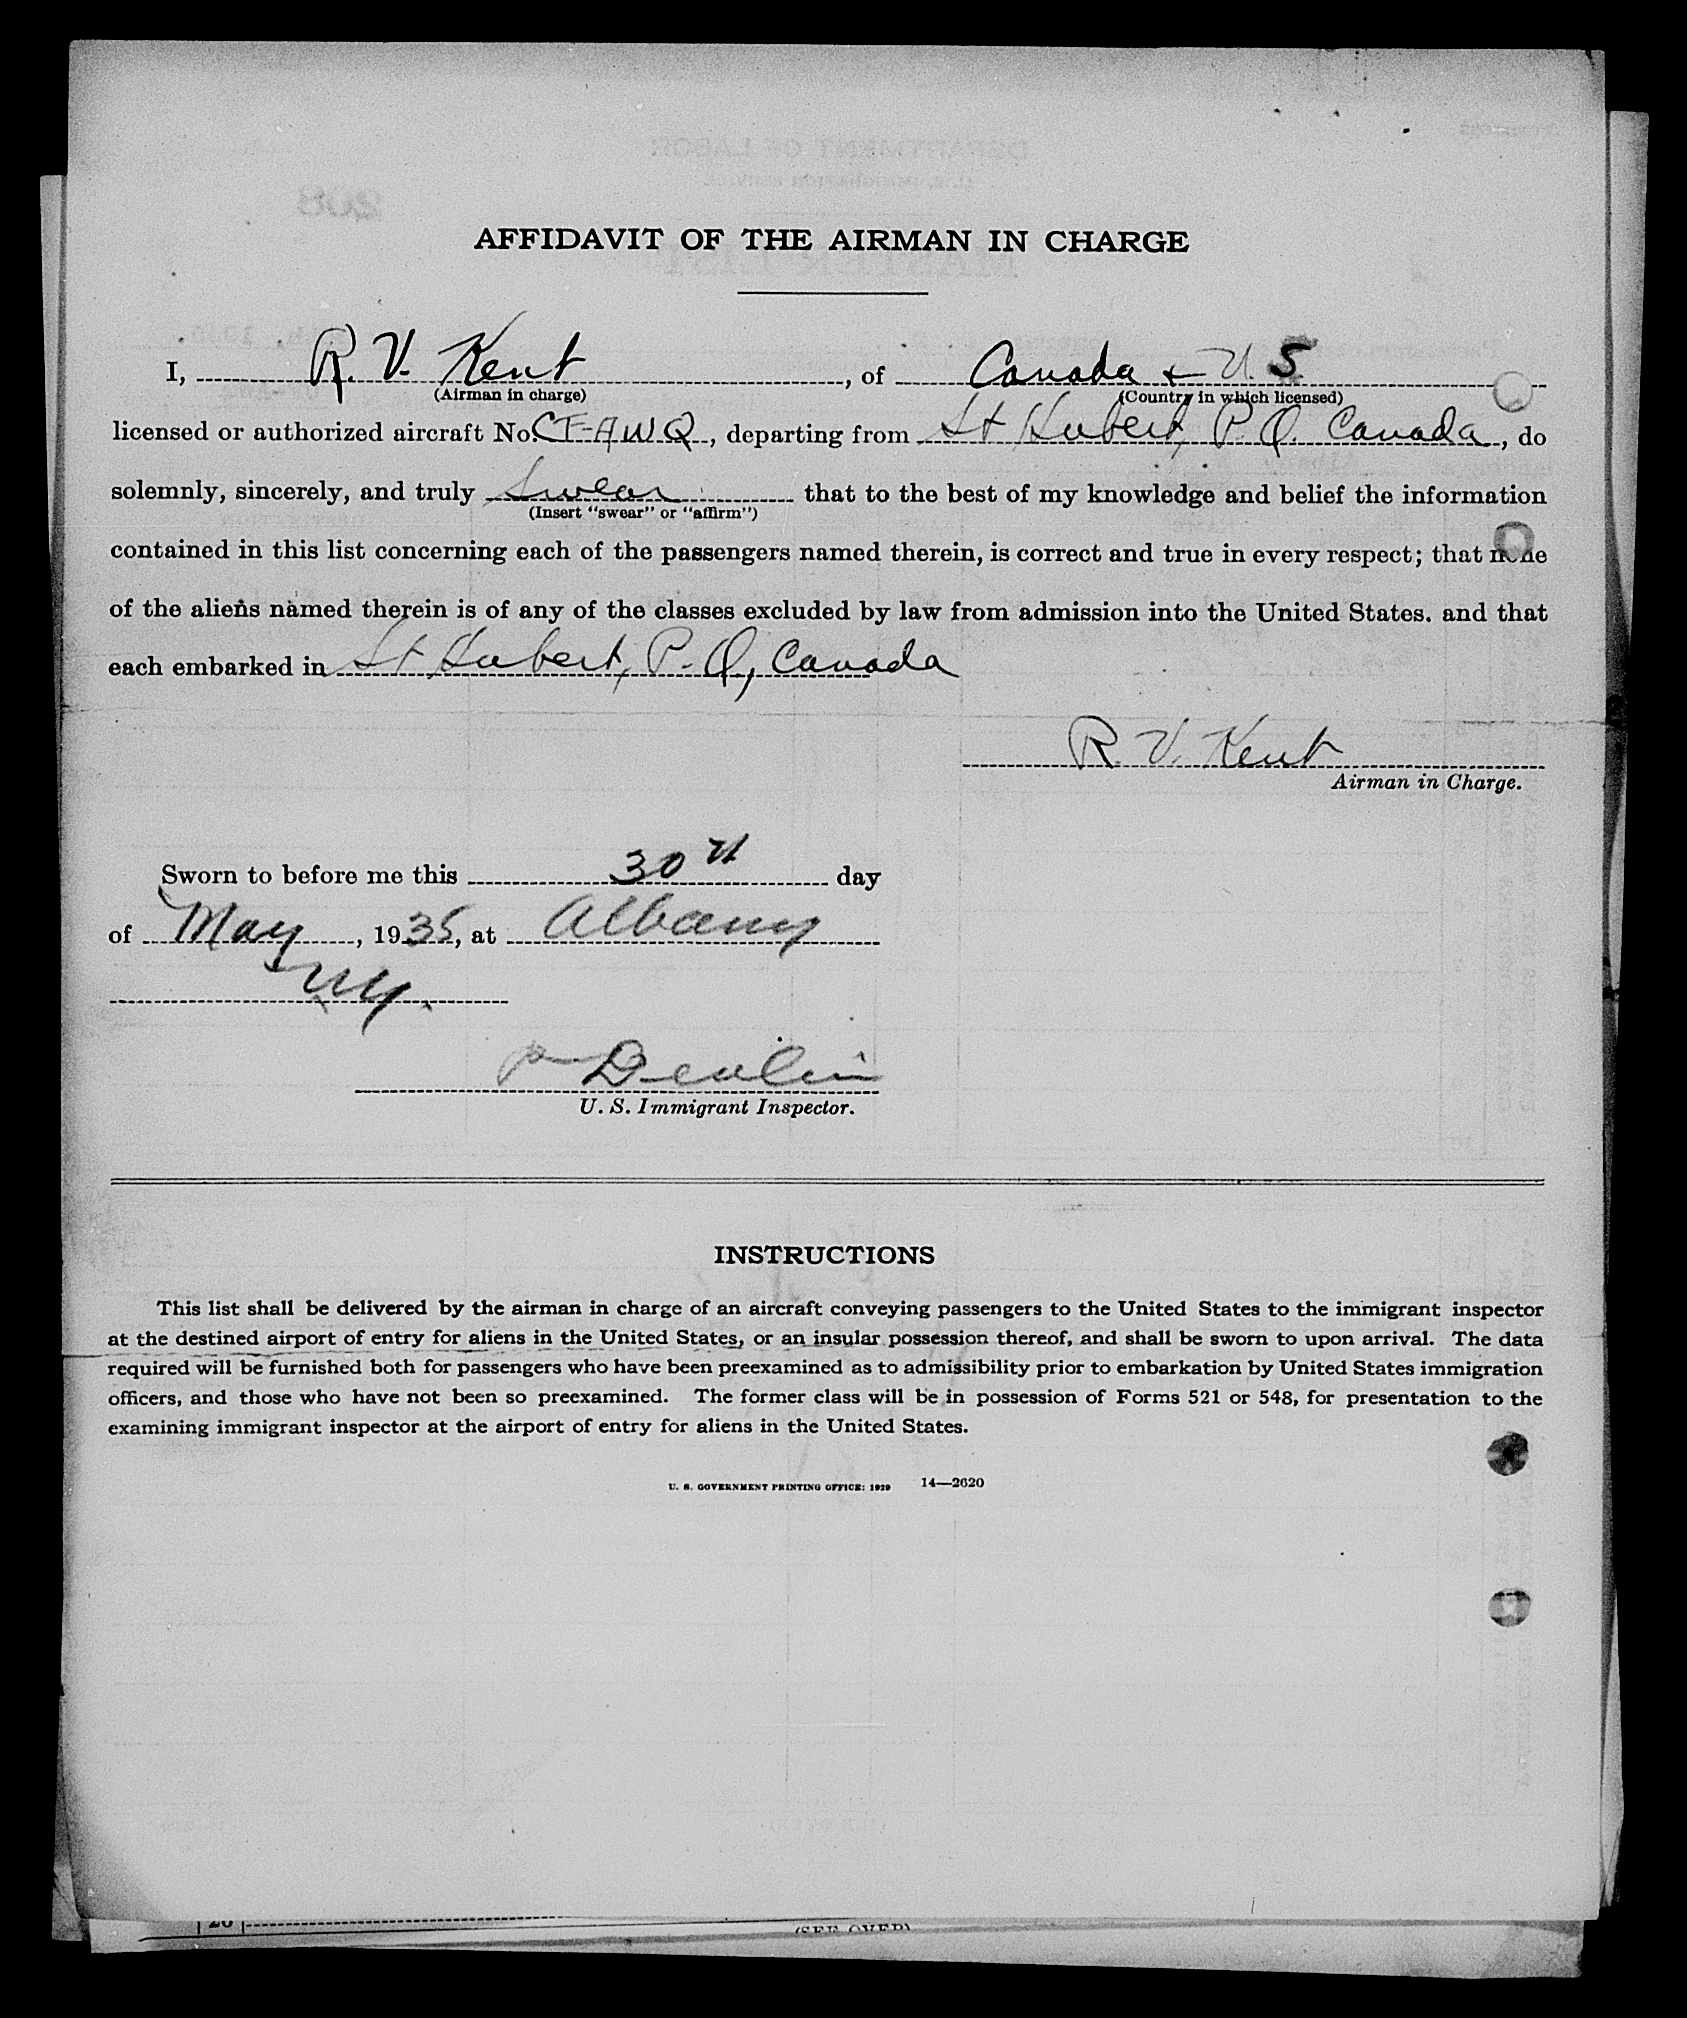 AFFIDAVIT OF THE AIRMAN IN CHARGE
I, R. V. Kent, of Canada + U.S
(Airman in charge) (Country in which licensed)
licensed or authorized aircraft No. CF-AWQ, departing from St Hubert, P.Q. Canada, do
solemnly, sincerely, and truly swear that to the best of my knowledge and belief the information
(Insert "swear" or "affirm")
contained in this list concerning each of the passengers named therein, is correct and true in every respect; that none
of the aliens named therein is of any of the classes excluded by law from admission into the United States. and that
each embarked in St Hubert, P.Q., Canada
R. V. Kent
Airman in Charge.
Sworn to before me this 30th day
of May, 1935, at Albany
NY.
Devlin
U. S. Immigrant Inspector.
INSTRUCTIONS
This list shall be delivered by the airman in charge of an aircraft conveying passengers to the United States to the immigrant inspector
at the destined airport of entry for aliens in the United States, or an insular possession thereof, and shall be sworn to upon arrival. The data
required will be furnished both for passengers who have been preexamined as to admissibility prior to embarkation by United States immigration
officers, and those who have not been so preexamined. The former class will be in possession of Forms 521 or 548, for presentation to the
examining immigrant inspector at the airport of entry for aliens in the United States.
U. S. GOVERNMENT PRINTING OFFICE: 1929 14—2620
20
(SEE OVER)